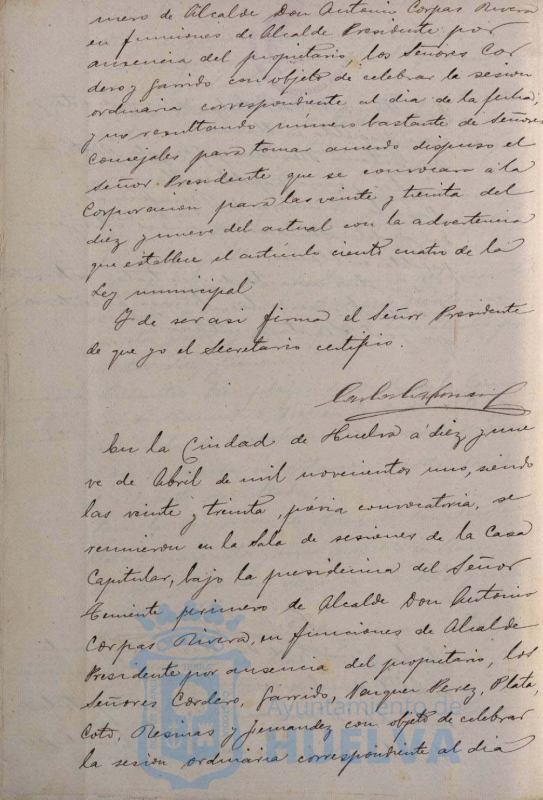 mero de Alcalde Don Antonio Corpas Rivera
en funciones de Alcalde Presidente por
ausencia del propietario, los Señores Cor
dero y Garrido con objeto de celebrar la sesion
ordinaria correspondiente al dia de la fecha;
y no resultando número bastante de Señores
Concejales para tomar acuerdo dispuso el
Señor Presidente que se convocara á la
Corporacion para las veinte y treinta del
diez y nueve del actual con la advertencia
que establece el articulo ciento cuatro de la
Ley municipal
Y de ser asi firma el Señor Presidente
de que yo el Secretario certifico.
En la Ciudad de Huelva á diez y nue
ve de Abril de mil novecientos uno, siendo
las veinte y treinta, prévia convocatoria, se
reunieron en la Sala de sesiones de la Casa
Capitular, bajo la presidencia del Señor
Teniente primero de Alcalde Don Antonio
Corpas Rivera, en funciones de Alcalde
Presidente por ausencia del propietario, los
Señores Cordero, Garrido, Vazquez Perez, Plata,
Coto, Resinas y Jernandez con objeto de celebrar
la sesion ordinaria correspondiente al dia
Ayuntamiento de
HUELVA